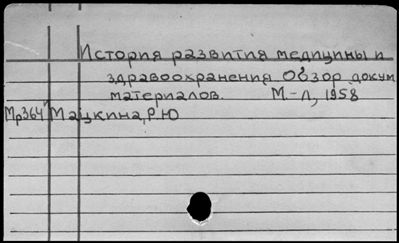 История развития медицины и
здравоохранения. Обзор докум
материалов. М-Л, 1958
Мр364 Мацкина, Р.Ю